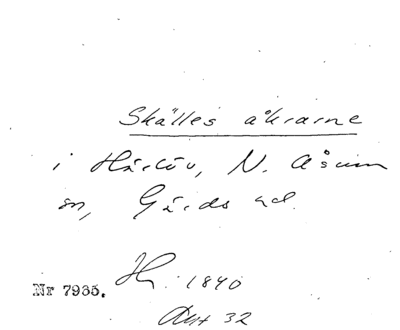 Skälles åkrarne
i Härlöv, N. Åsum
sn, Gärds hd.
H. 1840
Nr 7935.
Akt 32